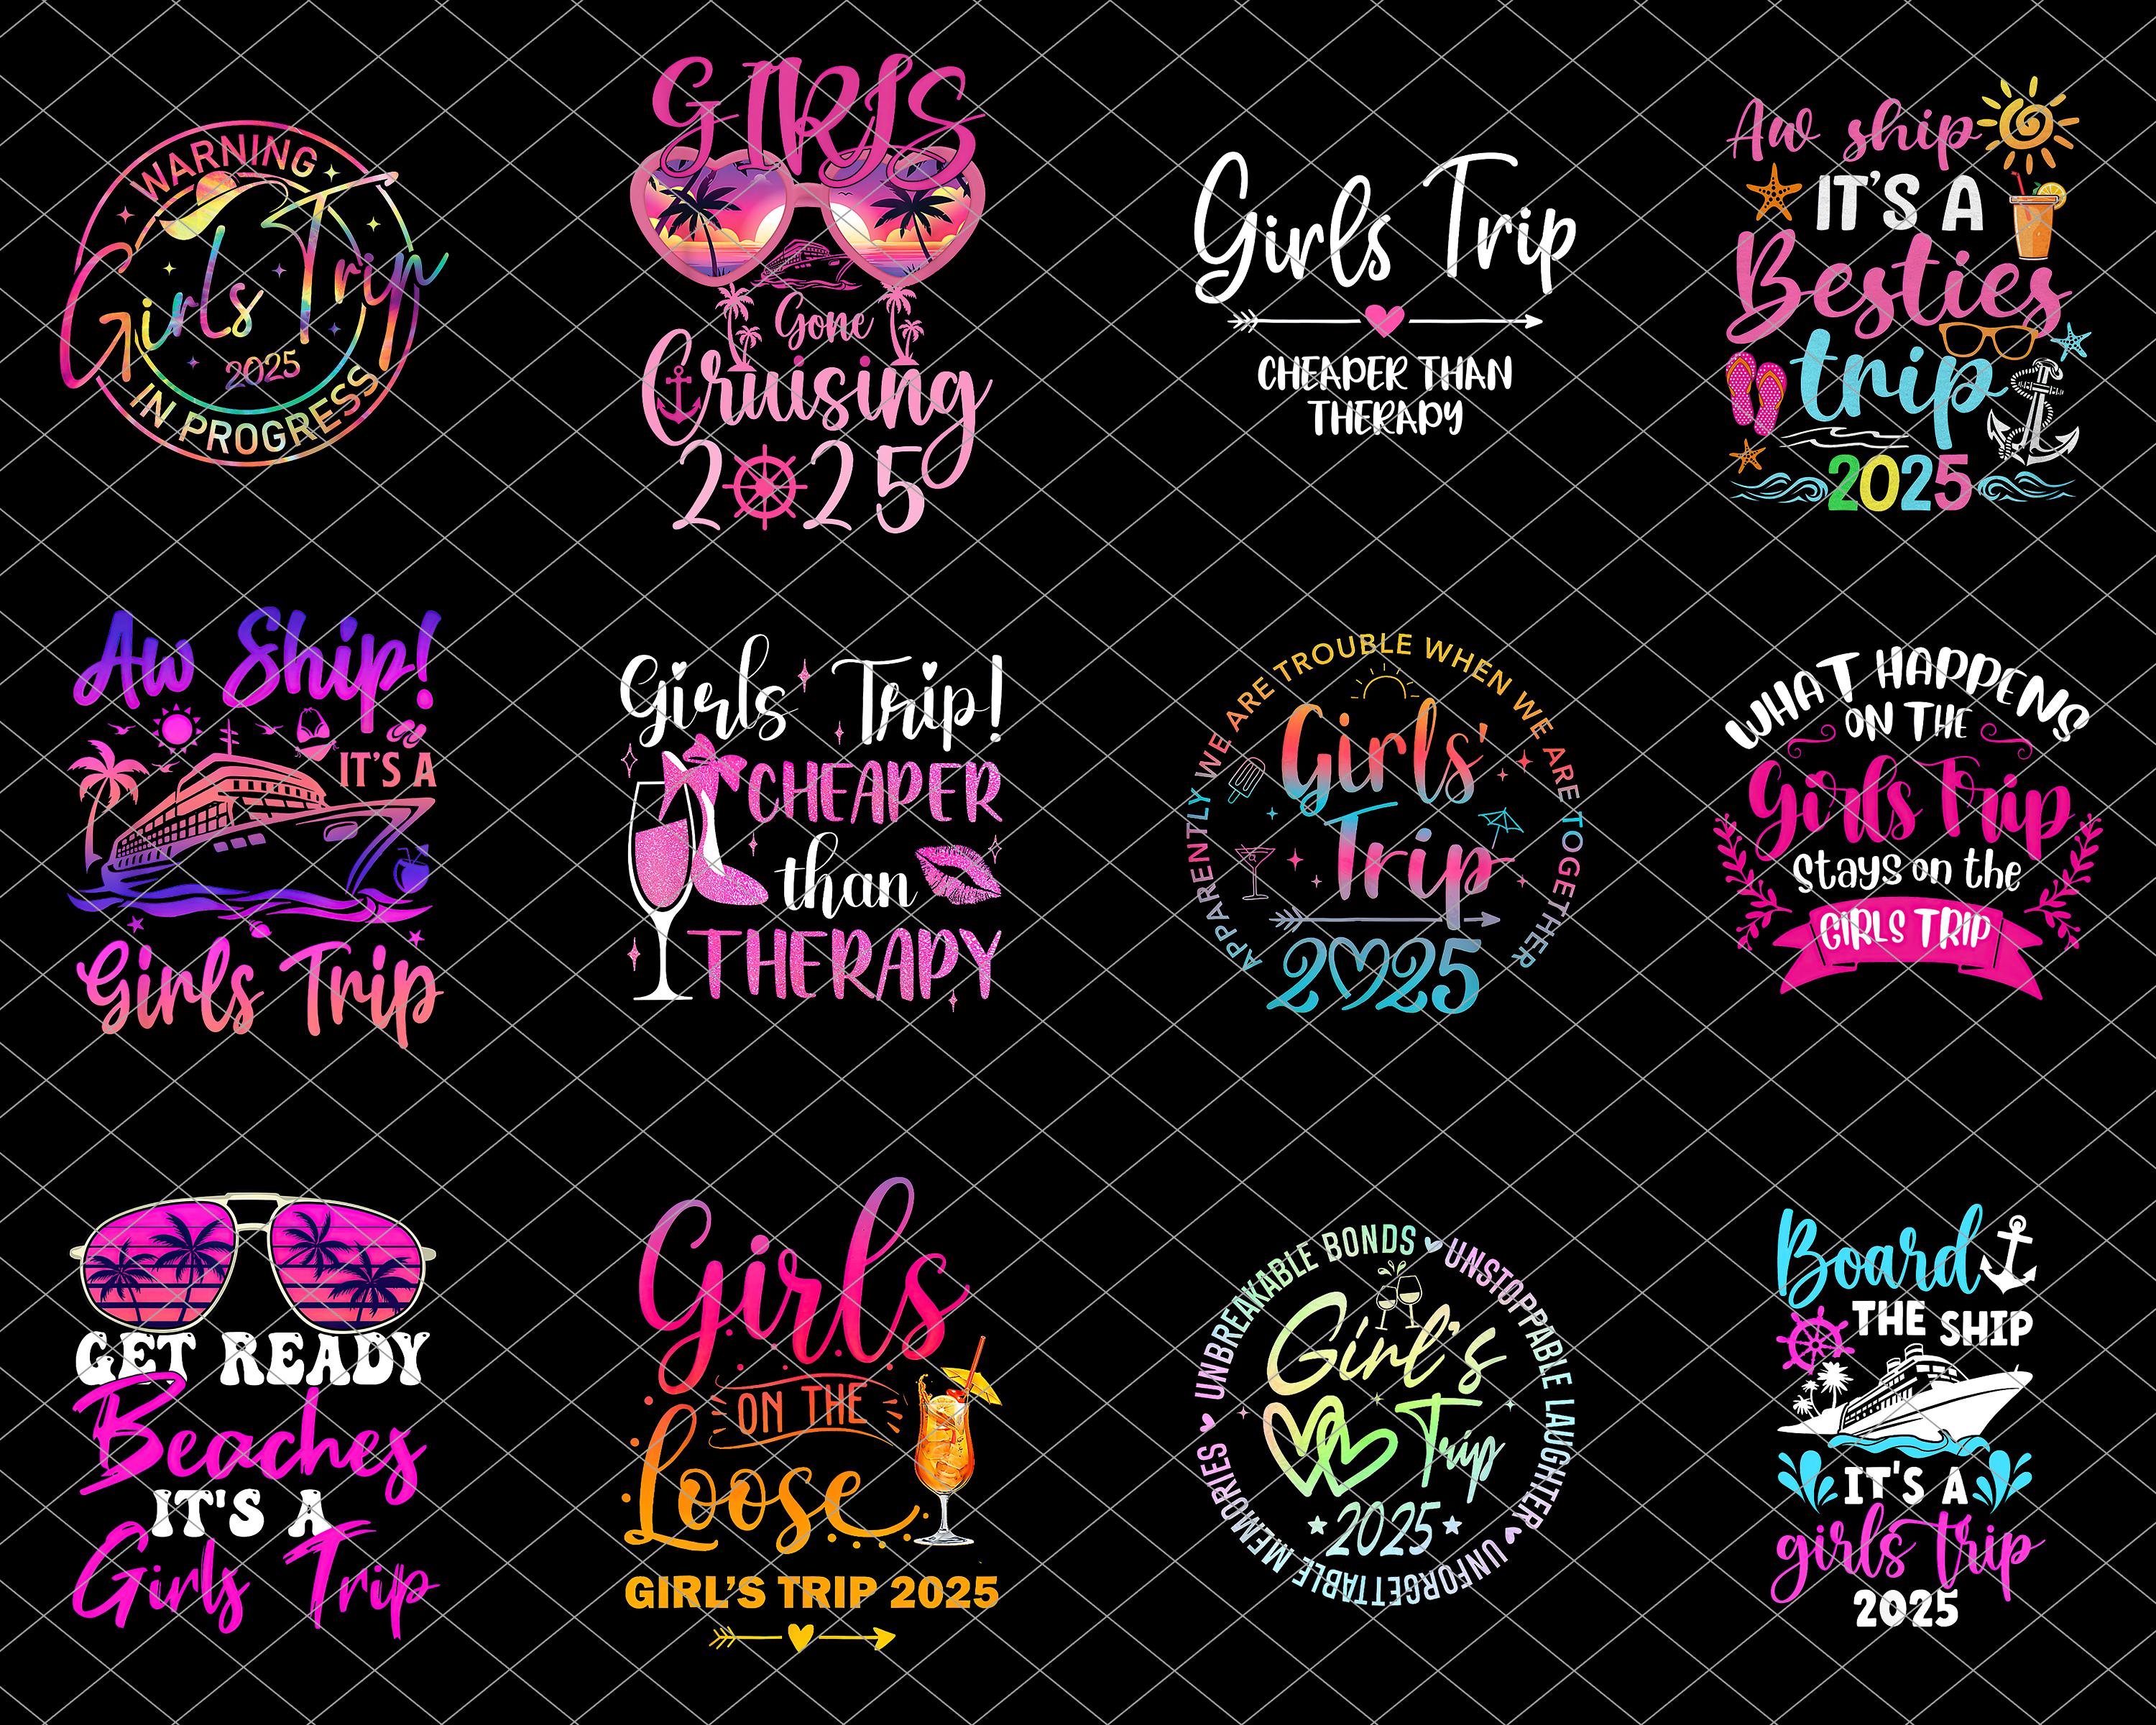 WARNING
Girls Trip
2025
IN PROGRESS
GIRLS
Gone
Cruising
2025
Girls Trip
CHEAPER THAN
THERAPY
Aw ship
IT'S A
Besties
trip
2025
Aw Ship!
IT'S A
Girls Trip
Girls Trip!
CHEAPER
than
THERAPY
APPARENTLY WE ARE TROUBLE WHEN WE ARE TOGETHER
Girls'
Trip
2025
WHAT HAPPENS
ON THE
Girls Trip
Stays on the
GIRLS TRIP
GET READY
Beaches
IT'S A
Girls Trip
Girls
ON THE
Loose
GIRL'S TRIP 2025
UNBREAKABLE BONDS
UNSTOPPABLE LAUGHTER
UNFORGETTABLE MEMORIES
Girl's
Trip
2025
Board
THE SHIP
IT'S A
girls trip
2025